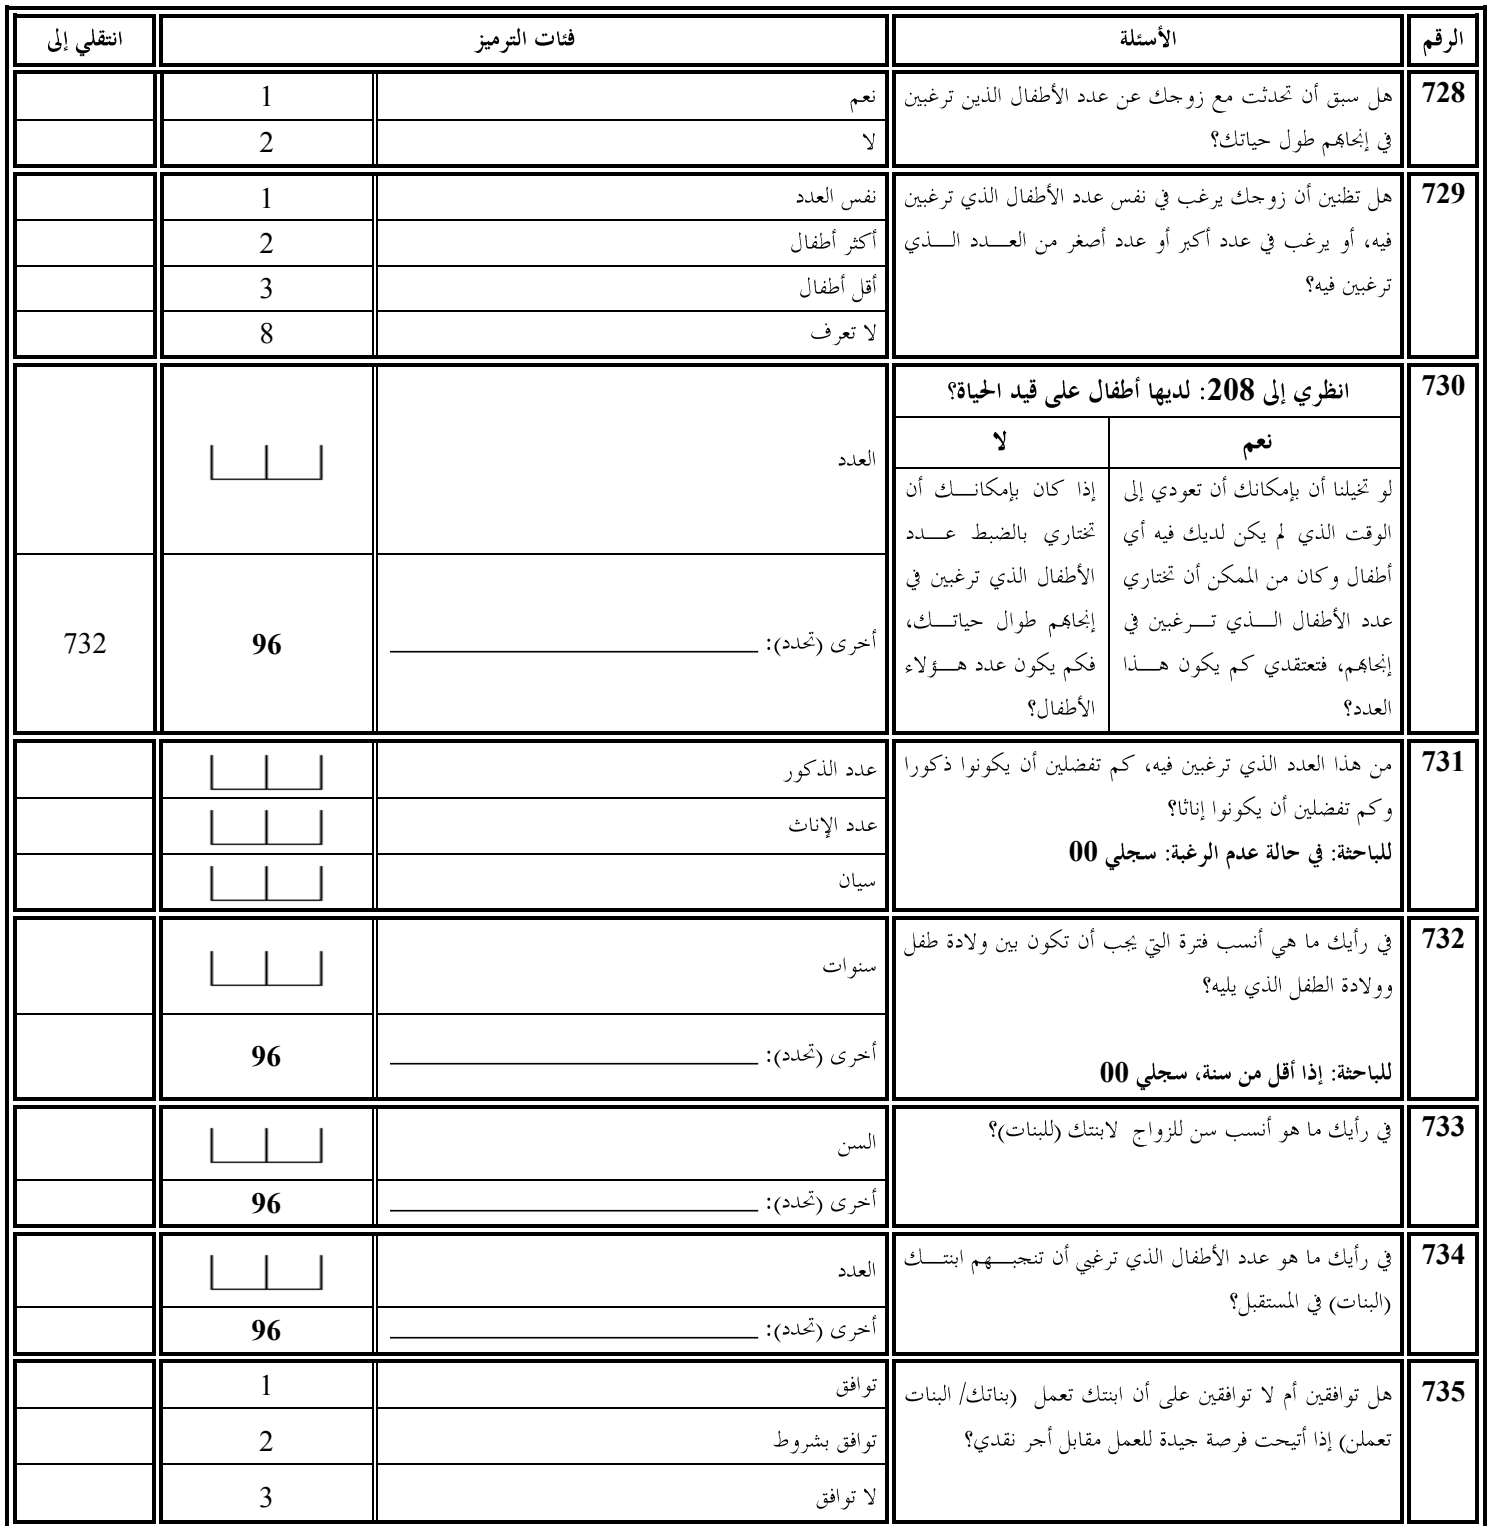 الرقم الأسئلة فئات الترميز انتقلي إلى
728 هل سبق أن تحدثت مع زوجك عن عدد الأطفال الذين ترغبين نعم 1
في إنجابهم طول حياتك؟ لا 2
729 هل تظنين أن زوجك يرغب في نفس عدد الأطفال الذي ترغبين نفس العدد 1
فيه، أو يرغب في عدد أكبر أو عدد أصغر من العدد الذي أكثر أطفال 2
ترغبين فيه؟ أقل أطفال 3
لا تعرف 8
730 انظري إلى 208: لديها أطفال على قيد الحياة؟
نعم
لو تخيلنا أن بإمكانك أن تعودي إلى
الوقت الذي لم يكن لديك فيه أي
أطفال وكان من الممكن أن تختاري
عدد الأطفال الذي ترغبين في
إنجابهم، فتعتقدي كم يكون هذا
العدد؟
لا
إذا كان بإمكانك أن
تختاري بالضبط عدد
الأطفال الذي ترغبين في
إنجابهم طوال حياتك،
فكم يكون عدد هؤلاء
الأطفال؟
العدد
أخرى (تحدد): 96 732
731 من هذا العدد الذي ترغبين فيه، كم تفضلين أن يكونوا ذكورا عدد الذكور
وكم تفضلين أن يكونوا إناثا؟ عدد الإناث
للباحثة: في حالة عدم الرغبة: سجلي 00 سيان
732 في رأيك ما هي أنسب فترة التي يجب أن تكون بين ولادة طفل سنوات
وولادة الطفل الذي يليه؟
أخرى (تحدد): 96
للباحثة: إذا أقل من سنة، سجلي 00
733 في رأيك ما هو أنسب سن للزواج لابنتك (للبنات)؟ السن
أخرى (تحدد): 96
734 في رأيك ما هو عدد الأطفال الذي ترغبي أن تنجبهم ابنتك العدد
(البنات) في المستقبل؟ أخرى (تحدد): 96
735 هل توافقين أم لا توافقين على أن ابنتك تعمل (بناتك/ البنات توافق 1
تعملن) إذا أتيحت فرصة جيدة للعمل مقابل أجر نقدي؟ توافق بشروط 2
لا توافق 3